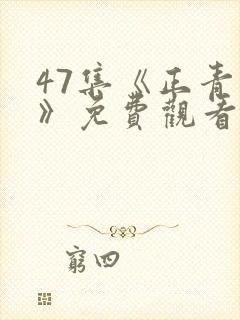 47集《正青
》免費觀看
窮四